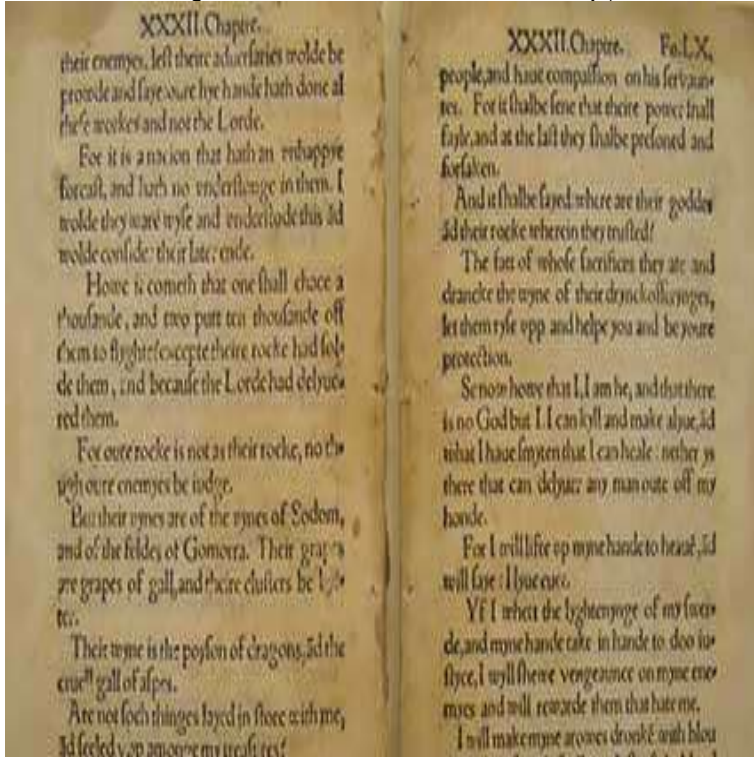 XXXII. Chaptre.
their enemyes, lest theire aduersaries wolde be
prowde and saye: oure hye hande hath done al
these workes and not the Lorde.
For it is a nacion that hath an vnhappye
forcast, and hath no vnderstonge in them. I
wolde they ware wyse and vnderstode this ād
wolde consider their later ende.
Howe it cometh that one shall chace a
thousande, and two putt ten thousande off
them to flyghte? excepte theire rocke had sol⸗
de them, and because the Lorde had delyue⸗
red them.
For oure rocke is not as their rocke, no the⸗
ugh oure enemyes be iudge.
But their vynes are of the vynes of Sodom,
and of the feldes of Gomorra. Their grapes
are grapes of gall, and theire clusters be byt⸗
ter.
Their wyne is the poyson of dragons, ād the
cruell gall of aspes.
Are not soch thinges layed in store with me,
ād seeled vpp amonge my treasures?
XXXII. Chaptre. Fo. LX.
people, and haue compassion on his servaun⸗
tes. For it shalbe sene that theire power shall
fayle, and at the last they shalbe presoned and
forsaken.
And it shalbe sayed: where are their goddes
ād their rocke wherein they trusted?
The fatt of whose sacrifices they ate and
drancke the wyne of their drynckofferynges,
let them ryse vpp and helpe you and be youre
protection.
Se now howe that I, I am he, and that there
is no God but I. I can kyll and make alyue, ād
what I haue smyten that I can heale: nether ys
there that can delyuer any man oute off my
honde.
For I will lifte vp myne hande to heauē, ād
will saye: I lyue euer.
Yf I whett the lyghtenynge of my swer⸗
de, and myne hande take in hande to doo iu⸗
styce, I wyll shewe vengeaunce on myne ene⸗
myes and will rewarde them that hate me.
I will make myne arowes dronkē with blou